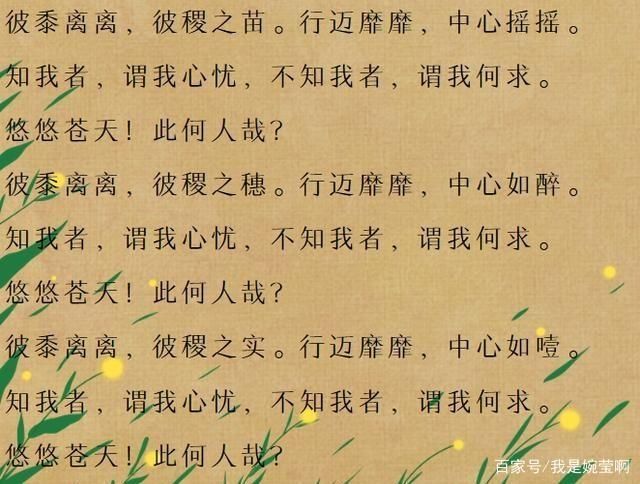 彼黍离离，彼稷之苗。行迈靡靡，中心摇摇。
知我者，谓我心忧，不知我者，谓我何求。
悠悠苍天！此何人哉？
彼黍离离，彼稷之穗。行迈靡靡，中心如醉。
知我者，谓我心忧，不知我者，谓我何求。
悠悠苍天！此何人哉？
彼黍离离，彼稷之实。行迈靡靡，中心如噎。
知我者，谓我心忧，不知我者，谓我何求。
悠悠苍天！此何人哉？
百家号/我是婉莹啊